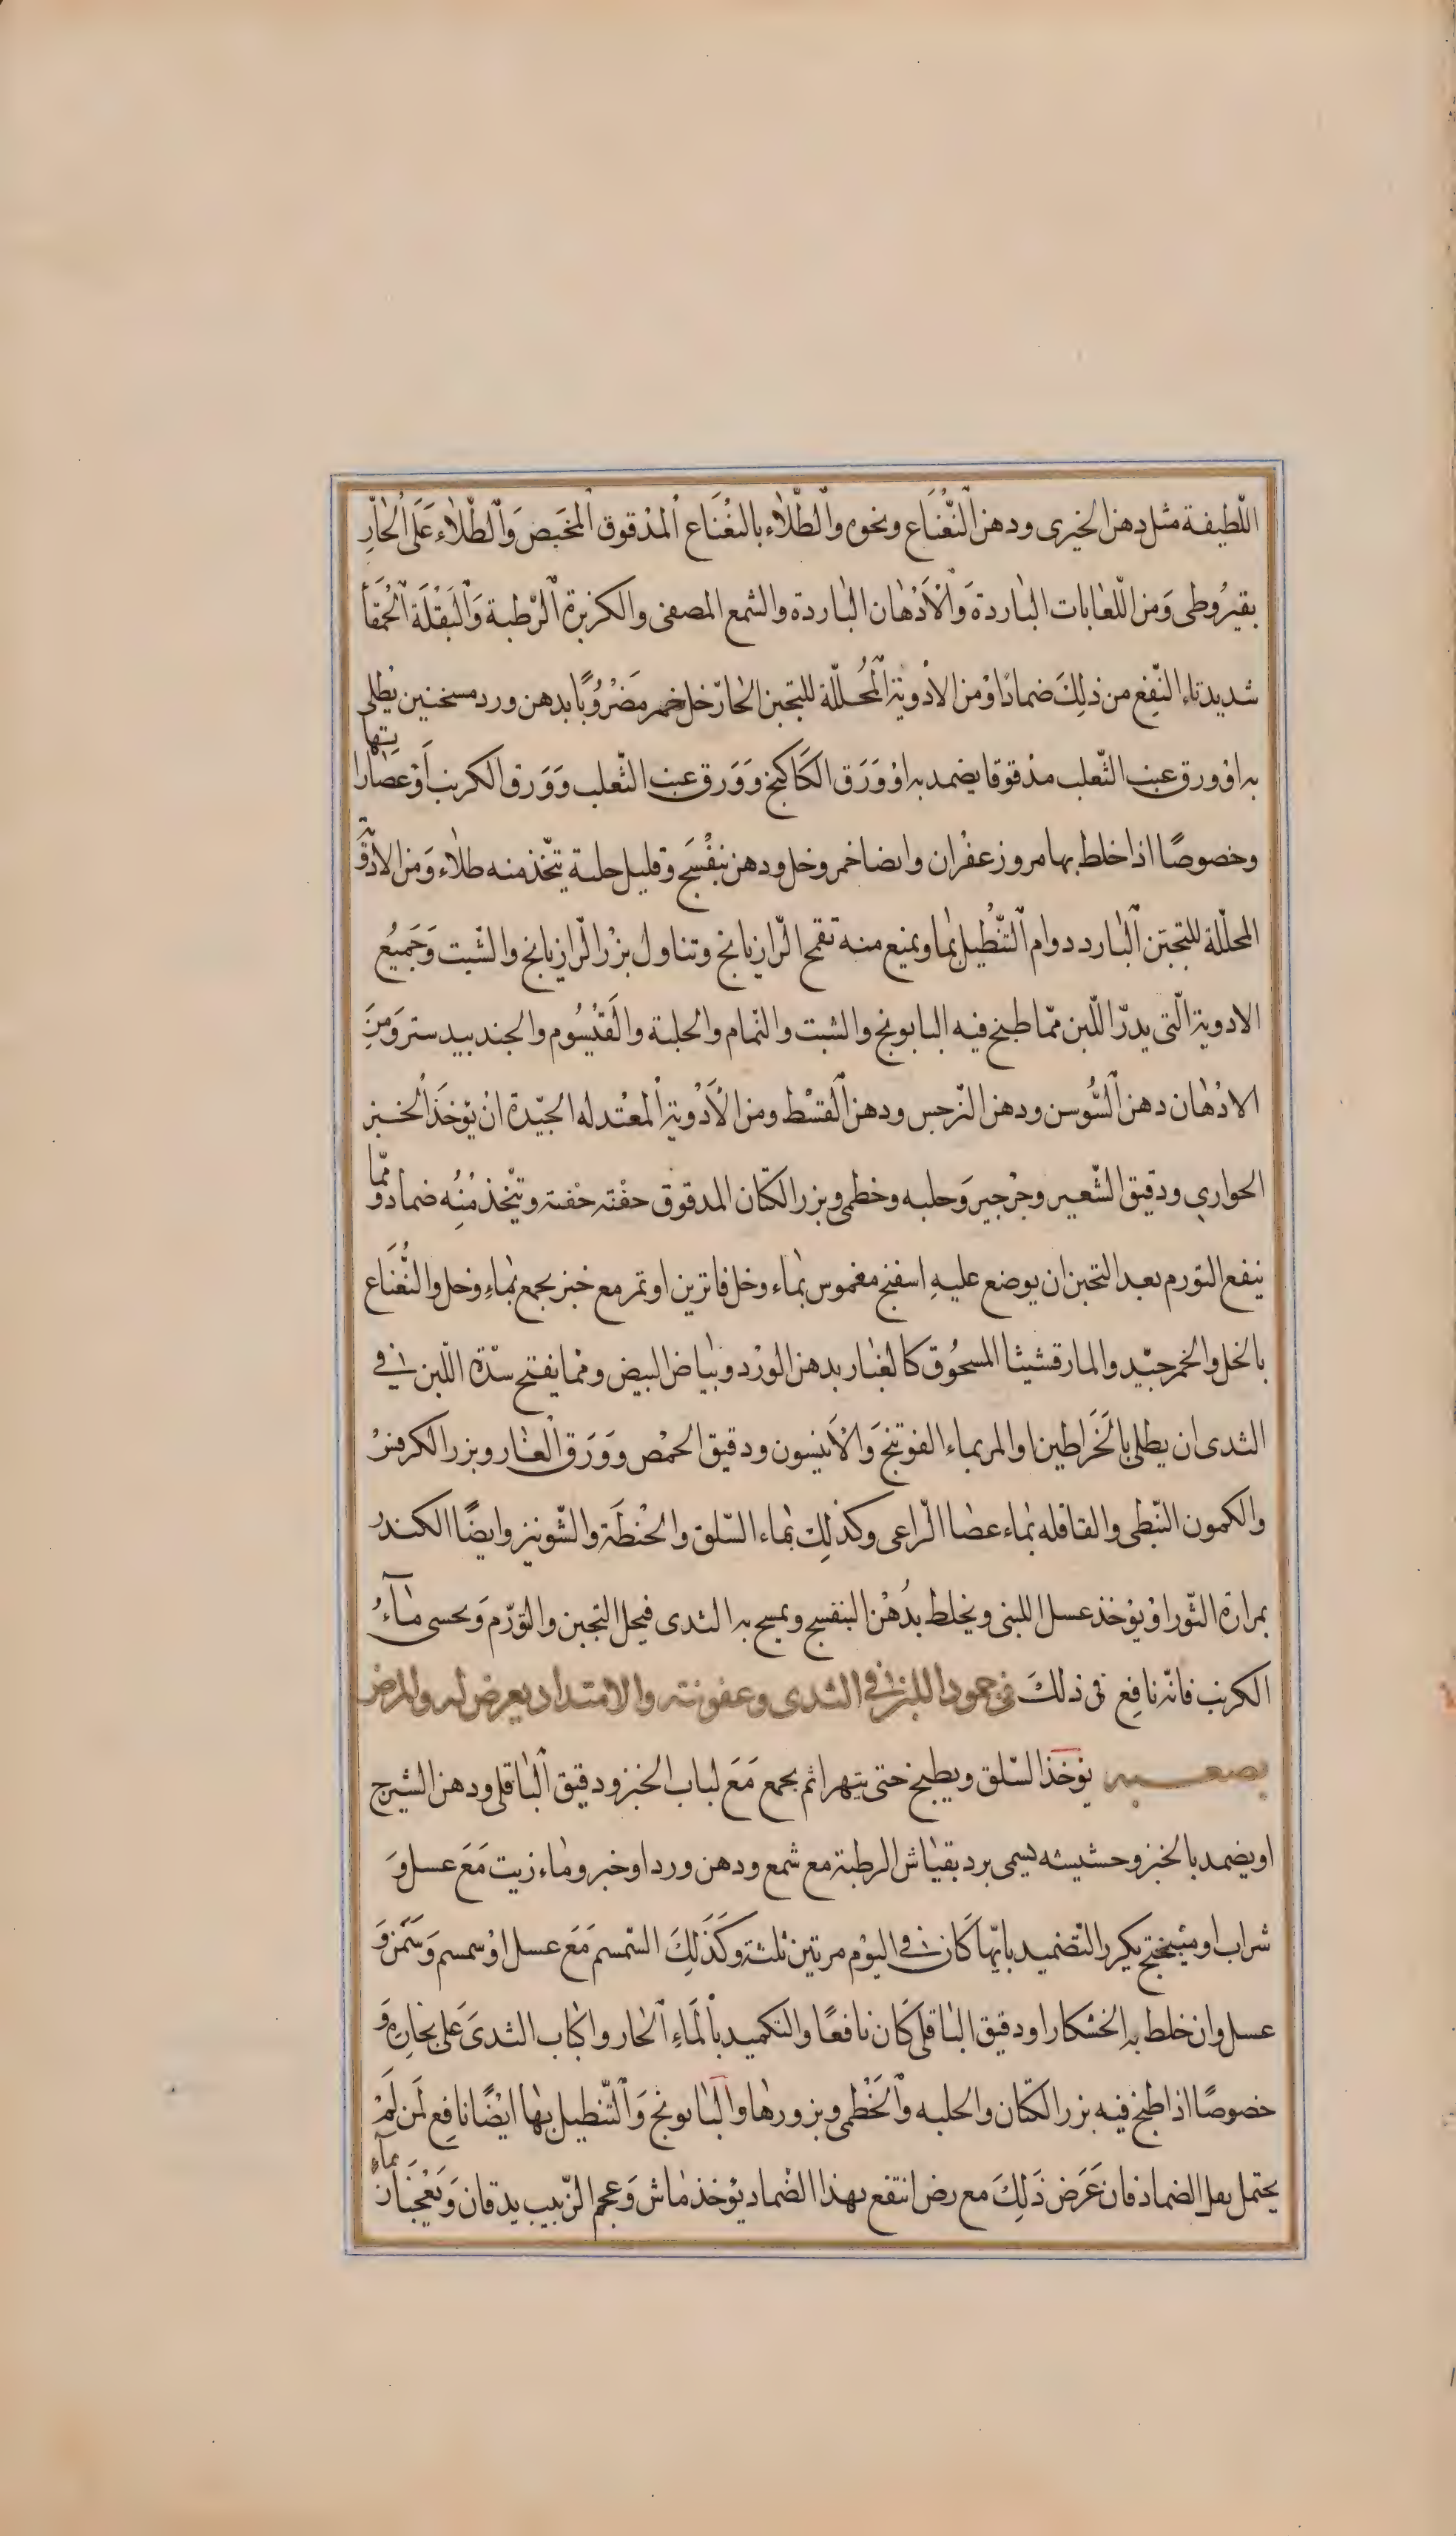 اللّطيفة مثل دهن الخيرى ودهن النّعْنَاع ونحوه والطّلاء بالنعْنَاع المدْقوق المخبَص وَالطّلاء عَلَى الحَارّ
بقيرُوطى وَمن اللّعابات الباردة وَالاَدْهان الباردة والشمع المصفى والكزبرة الرّطبة وَالبَقْلَة الحُمقَا
شديدتاء النّفع من ذلِكَ ضمادًا وْمن الادْوية المُحلّلة للتجبن الحارّ خل خمر مَضْرُوبًا بدهن ورد مسخنين يُطلى
به اوْ ورق عنب الثّعلب مدْقوقا يضمد به اوْ وَرَق الكَاكنج وَوَرق عنب الثّعلب وَوَرق الكرنب أَوْ عصاراتها
وخصوصًا اذا خلط بها مر وزعفْران وايضا خمر وخل ودهن بنفْسَج وقليل حلبة يتّخذ منه طلاء وَمن الادْوية
المحلّلة للتجبّن البارد دوام التّنْطيل بماء ويمنع منه تقمح الرّازيانج وتناول بزْر الرّازيانج والشّبت وَجَميُع
الادوية الّتى يدرّ اللّبن ممّا طبخ فيه البابونج والشبت والنّمام والحلبة والقَيْسُوم والجندبيدستر وَمنَ
الادْهان دهن السُّوسن ودهن النّرجس ودهن القسْط ومن الاَدْوية المعْتدله الجيّدة انْ يؤخَذَ الخبز
الحوارى ودقيق الشّعير وجرْجير وَحلبه وخطمى وبزر الكتّان المدقوق حفْنة حفْنة ويتّخذ منْه ضماد وممّا
ينفع التورم بعد التجبن ان يوضع عليهِ اسفنج مغموس بماء وخل فاترين او تمر مع خبز يجمع بماءِ وخل والنُّعْنَاع
بالخل والخمر جيّد والمارقشيثا المسحُوق كالغبار بدهن الورْد وبياض البيض ومما يفتح سدّة اللّبن فى
الثدى ان يطلى بالخَرَاطين او المر بماء الفوتنج وَالاَنيسون ودقيق الحمْص ووَرَق الغار وبزر الكرفس
والكمون النّبطى والقاقله بماء عصا الرّاعى وكذلِكَ بماء السّلق والحنْطَة والشّونيز وايضًا الكندر
بمرارة الثّور اوْ يؤخذ عسل اللبنى ويخلط بدُهْن البنفسج ويمسح به الثدى فيحل التجبن والتورّم وَيحسى ماءُ
الكرنب فانّه نافِع فى ذلكَ فى جمود اللبن فى الثدى وعفونته والامتداد يعرض له والمرض
يصعبه يؤخذ السّلق ويطبخ حتى يتهرا ثم يجمع مَعَ لباب الخبز ودقيق الباقلى ودهن الشيرج
او يضمد بالخبز وحشيشه يسمى برد بقياش الرطبة مع شمع ودهن ورد او خبز وماء زيت مَعَ عسل وَ
شراب او ميْبختج يكرر التّضميد بايّها كَان فى اليوْم مرتين ثلثة وكَذَلِكَ السّمسم مَعَ عسل اوْ سمسم وَسَمْن وَ
عسل وان خلط به الخشكار او دقيق الباقلى كَان نافعًا والتكميد بالمَاءِ الحَار واكباب الثدىَ عَلى بخارِه وَ
خصوصًا اذا طبخ فيه بزر الكتّان والحلبه والخَطْمى وبزورها والبابونج وَالتّنطيل بها ايْضًا نافِع لمَن لَمْ
يحتمل بعل الضماد فان عَرَض ذَلِكَ مع رض انتفع بهذا الضماد يؤخذ ماش وَعجم الزّبيب يدقان وَيعْجَنان بماءِ